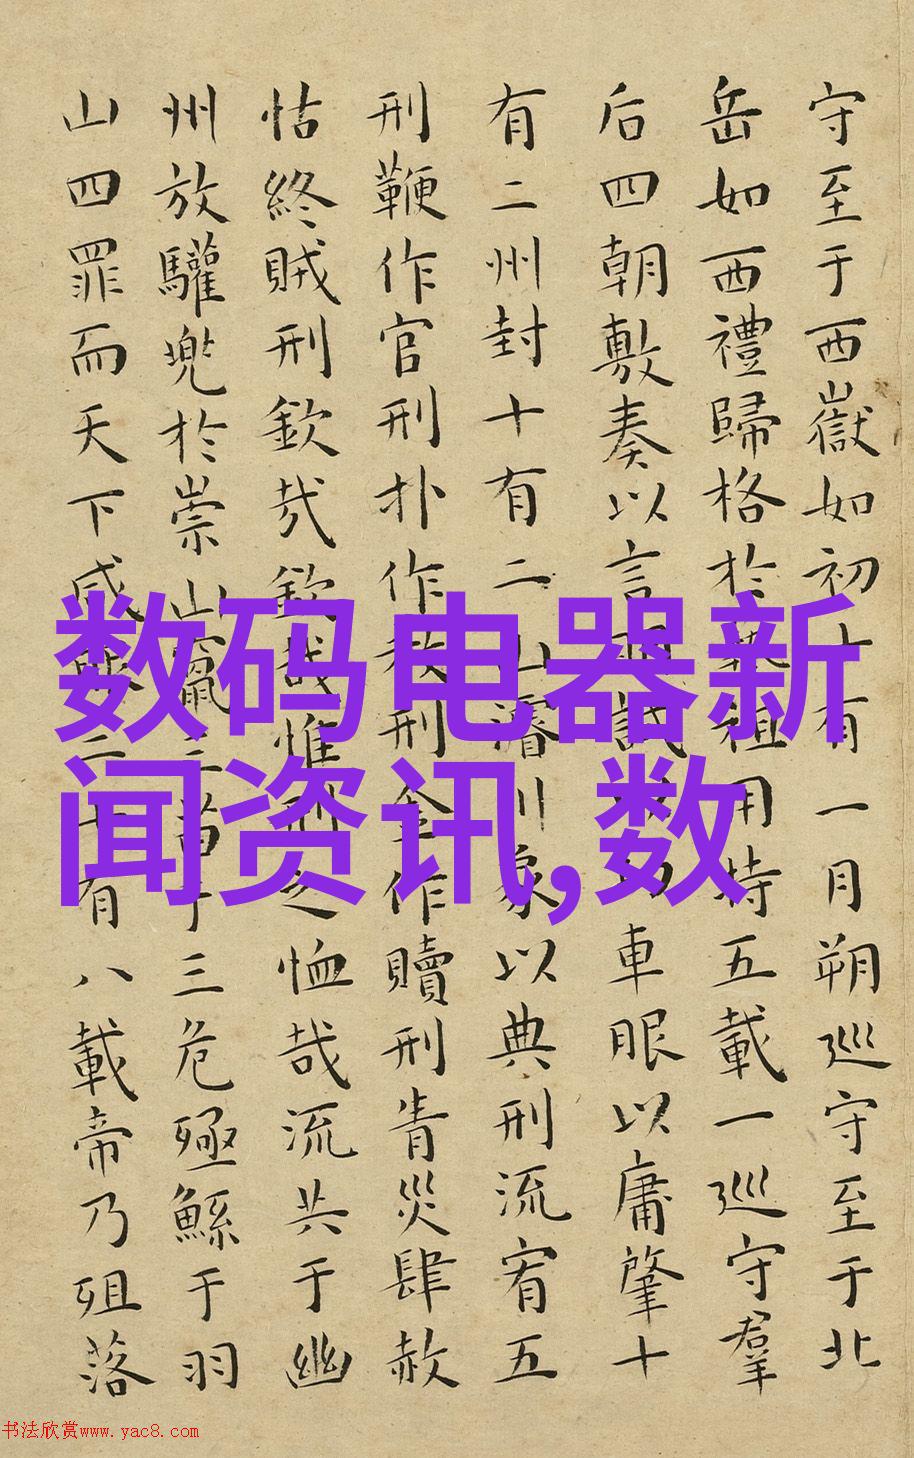 守至于西嶽如初十有一月朔巡守至于北
岳如西禮歸格於藝祖用特五載一巡守羣
后四朝敷奏以言明試以功車眼以庸肇十
有二州封十有二山濬川象以典刑流宥五
刑鞭作官刑扑作教刑金作贖刑眚災肆赦
怙終賊刑欽哉欽哉惟刑之恤哉流共于幽
州放驩兜於崇山竄三苗于三危殛鯀于羽
山四罪而天下咸服二十有八載帝乃殂落
数码电器新
闻资讯,数
书法欣赏www.yac8.com